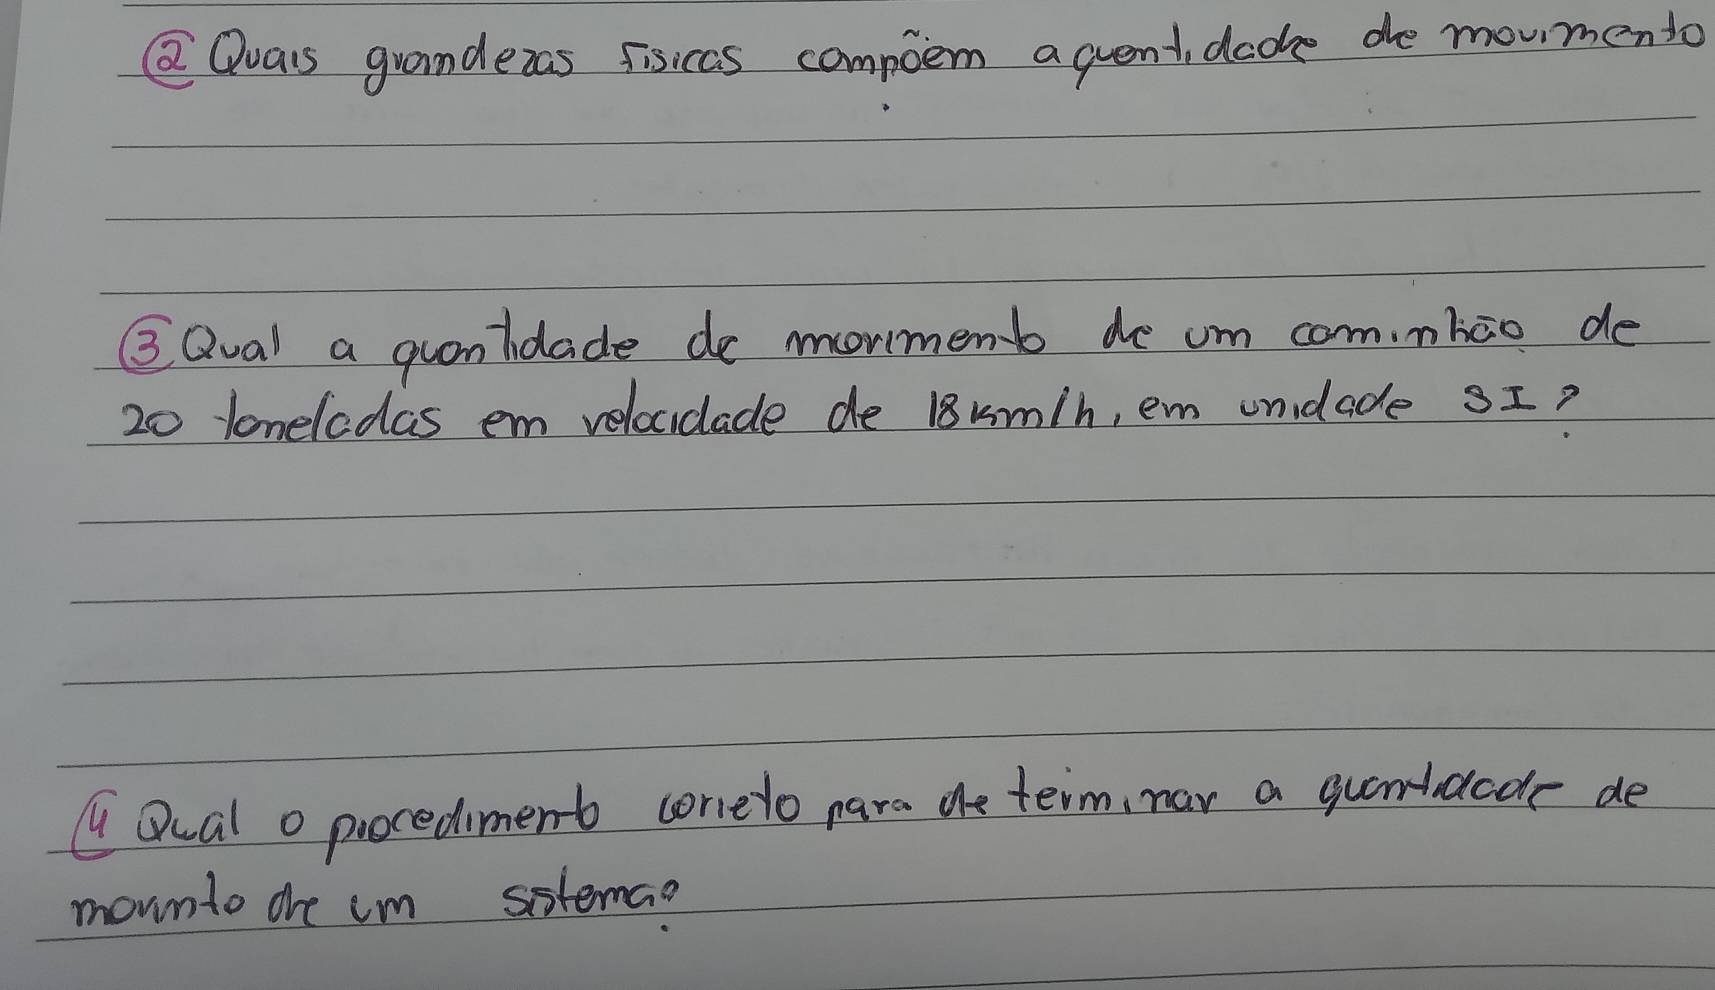 ② Quais grandezas físicas compõem a quantidade de movimento
③ Qual a quantidade de movimento de um caminhão de
20 toneladas em velocidade de 18 km/h, em unidade SI?
④ Qual o procedimento correto para determinar a quantidade de
movimto de um sistema?